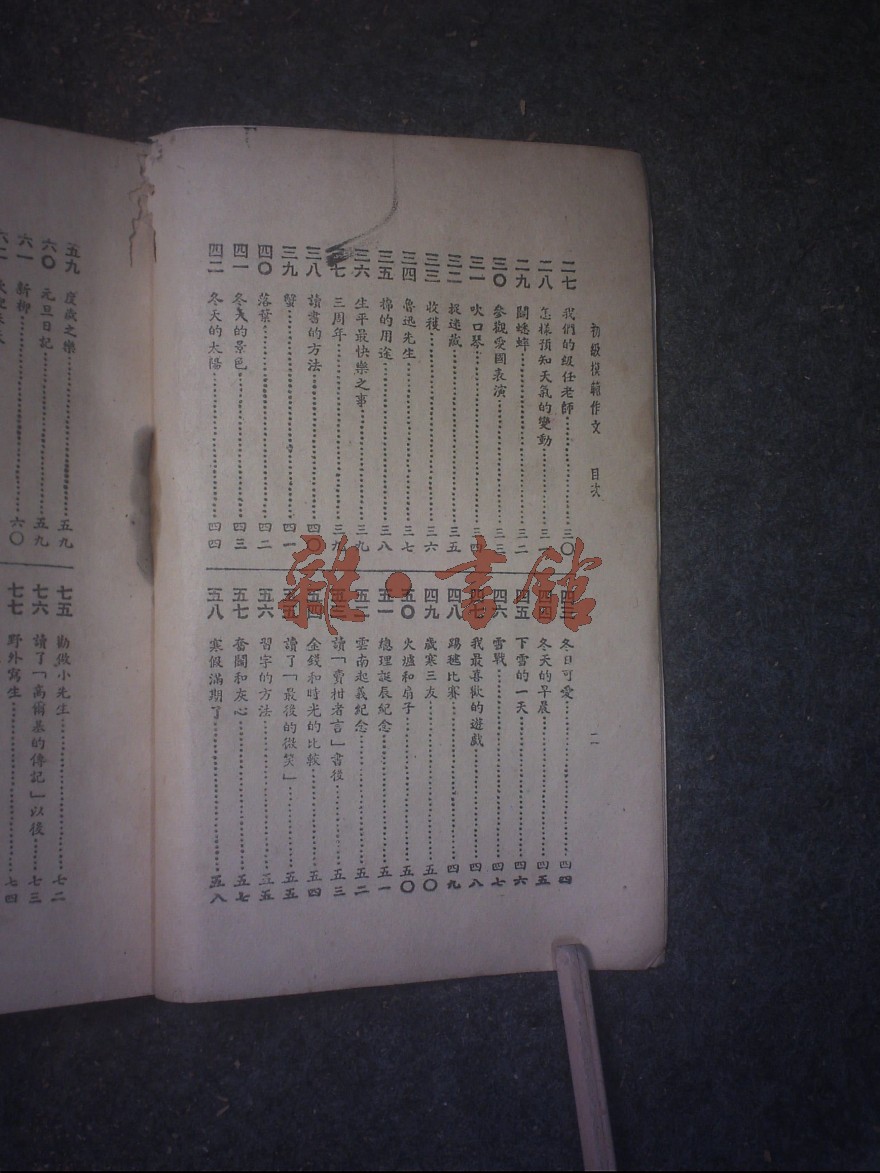 初級模範作文　目次　二
二七　我們的級任老師　三〇
二八　怎樣預知天氣的變動　三一
二九　鬪蟋蟀　三二
三〇　參觀愛國表演　三三
三一　吹口琴　三四
三二　捉迷藏　三五
三三　收穫　三六
三四　魯迅先生　三七
三五　棉的用途　三八
三六　生平最快樂之事　三九
三七　三周年　三九
三八　讀書的方法　四〇
三九　蟹　四一
四〇　落葉　四二
四一　冬天的景色　四三
四二　冬天的太陽　四四
四三　冬日可愛　四四
四四　冬天的早晨　四五
四五　下雪的一天　四六
四六　雪戰　四七
四七　我最喜歡的遊戲　四八
四八　踢毽比賽　四九
四九　歲寒三友　五〇
五〇　火爐和扇子　五〇
五一　總理誕辰紀念　五一
五二　雲南起義紀念　五二
五三　讀「賣柑者言」書後　五三
五四　金錢和時光的比較　五四
五五　讀了「最後的微笑」　五五
五六　習字的方法　五五
五七　奮鬪和灰心　五七
五八　寒假滿期了　五八
五九　度歲之樂　五九
六〇　元旦日記　五九
六一　新柳　六〇
六二
七五　勸做小先生　七二
七六　讀了「高爾基的傳記」以後　七三
七七　野外寫生　七四
雜·書館